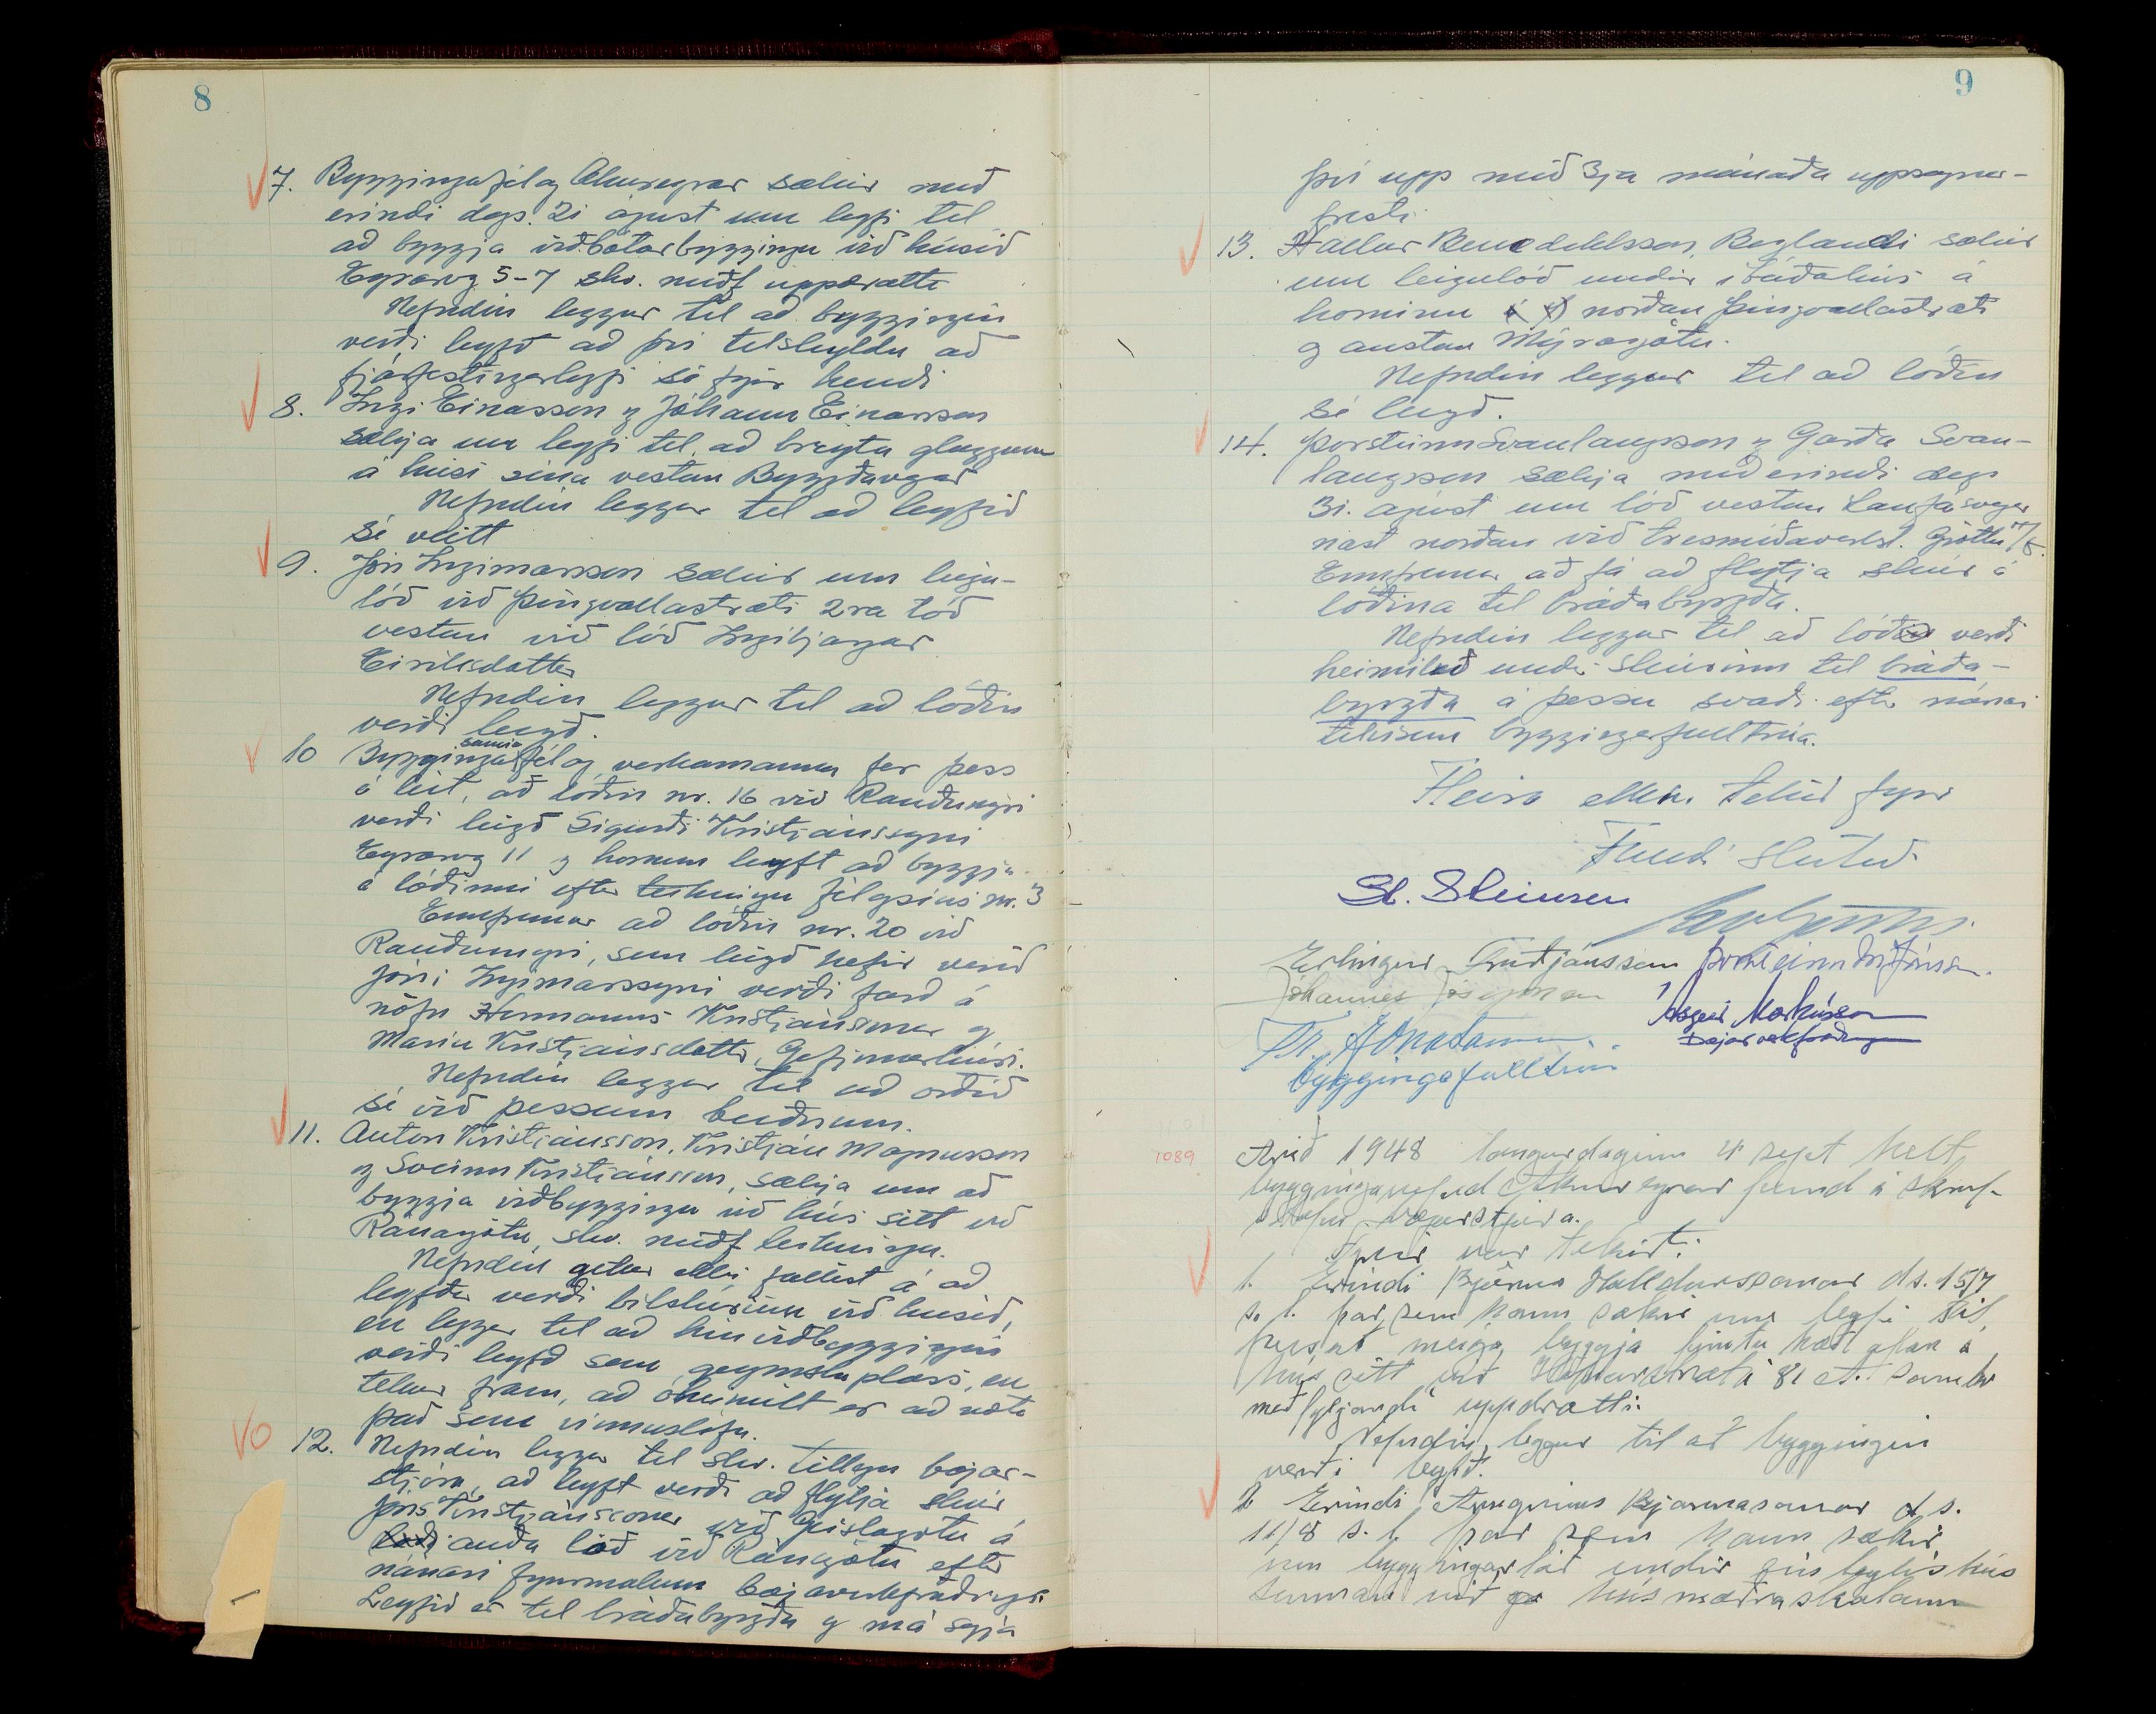 8
7. Byggingafélag Akureyrar sækir með
erindi dags. 21 ágúst um leyfi til
að byggja viðbótarbyggingu við húsið
Eyrarveg 5-7 skv. meðf uppdrætti
Nefndin leggur til að byggingin
verði leyfð að því tilskyldu að
fjárfestingarleyfi sé fyrir hendi
8. Ingi Einarsson og Jóhann Einarsson
sækja um leyfi til að breyta gluggum
á húsi sínu vestan Byggðavegar
Nefndin leggur til að leyfið
sé veitt
9. Jón Ingimarsson sækir um leigu-
lóð við Þingvallastræti 2ra lóð
vestan við lóð Ingibjargar
Eiríksdóttur
Nefndin leggur til að lóðin
verði leigð.
10 Byggingasamvinnufélag verkamanna fer þess
á leit, að lóðin nr. 16 við Rauðumýri
verði leigð Sigurði Kristjánssyni
Eyrarveg 11 og honum leyft að byggja
á lóðinni eftir teikningu félagsins nr. 3
Ennfremur að lóðin nr. 20 við
Rauðumýri, sem leigð hefir verið
Jóni Ingimarssyni verði færð á
nöfn Hermanns Kristjánssonar og
Maríu Kristjánsdóttur, Gefjunarhúsi.
Nefndin leggur til að orðið
sé við þessum beiðnum.
11. Anton Kristjánsson, Kristján Magnússon
og Sveinn Kristjánsson, sækja um að
byggja viðbyggingu við hús sitt við
Ránargötu, skv. meðf teikningu.
Nefndin getur ekki fallist á að
leyfður verði bílskúrinn við húsið,
en leggur til að hin viðbyggingin
verði leyfð sem geymslupláss, en
tekur fram, að óheimilt er að nota
það sem vinnustofu.
12. Nefndin leggur til skv. tillögu bæjar-
stjóra, að leyft verði að flytja skúr
Jóns Kristjánssonar við Geislagötu á
auða lóð við Ránargötu eftir
nánari fyrirmælum bæjarverkfræðings.
Leyfið er til bráðabyrgða og má segja
1
9
því upp með 3ja mánaða uppsagnar-
fresti
13. Hallur Benediktsson, Beglandi sækir
um leigulóð undir íbúðahús á
horninu norðan Þingvallastrætis
og austan Mýrarvegötu.
Nefndin leggur til að lóðin
sé leigð.
14. Þorsteinn Svanlaugsson og Garðar Svan-
laugsson sækja með erindi dags
31. ágúst um lóð vestan Laufásvegar
næst norðan við trésmíðaverkst. Gróttu h/f.
Ennfremur að fá að flytja skúr á
lóðina til bráðabyrgða.
Nefndin leggur til að lóðin verði
heimiluð undir skúrinn til bráða-
byrgða á þessu svæði eftir nánari
tilvísun byggingafulltrúa.
Fleira ekki tekið fyrir
Fundi slitið.
St. Steinsen
Erlingur Friðjónsson Þorsteinn M Jónsson.
Jóhannes Jósepsson
Ásgeir Markússon
bæjarverkfræðingur
byggingafulltrúi
1089
Árið 1948 laugardaginn 4 sept hélt
byggingarnefnd Akureyrar fund á skrif-
stofu bæjarstjóra.
Fyrir var tekið:
1. Erindi Björns Halldórssonar ds. 15/7
s. l. þar sem hann sækir um leyfi til
þess að mega byggja fimtu hæð ofan á
hús sitt við Hafnarstræti 81 A. samkv
meðfylgjandi uppdrætti.
Nefndin leggur til að byggingin
verði leyfð.
2 Erindi Arngríms Bjarnasonar ds.
11/8 s. l. þar sem hann sækir
um byggingarlóð undir einbýlishús
sunnan við húsmæðraskólann